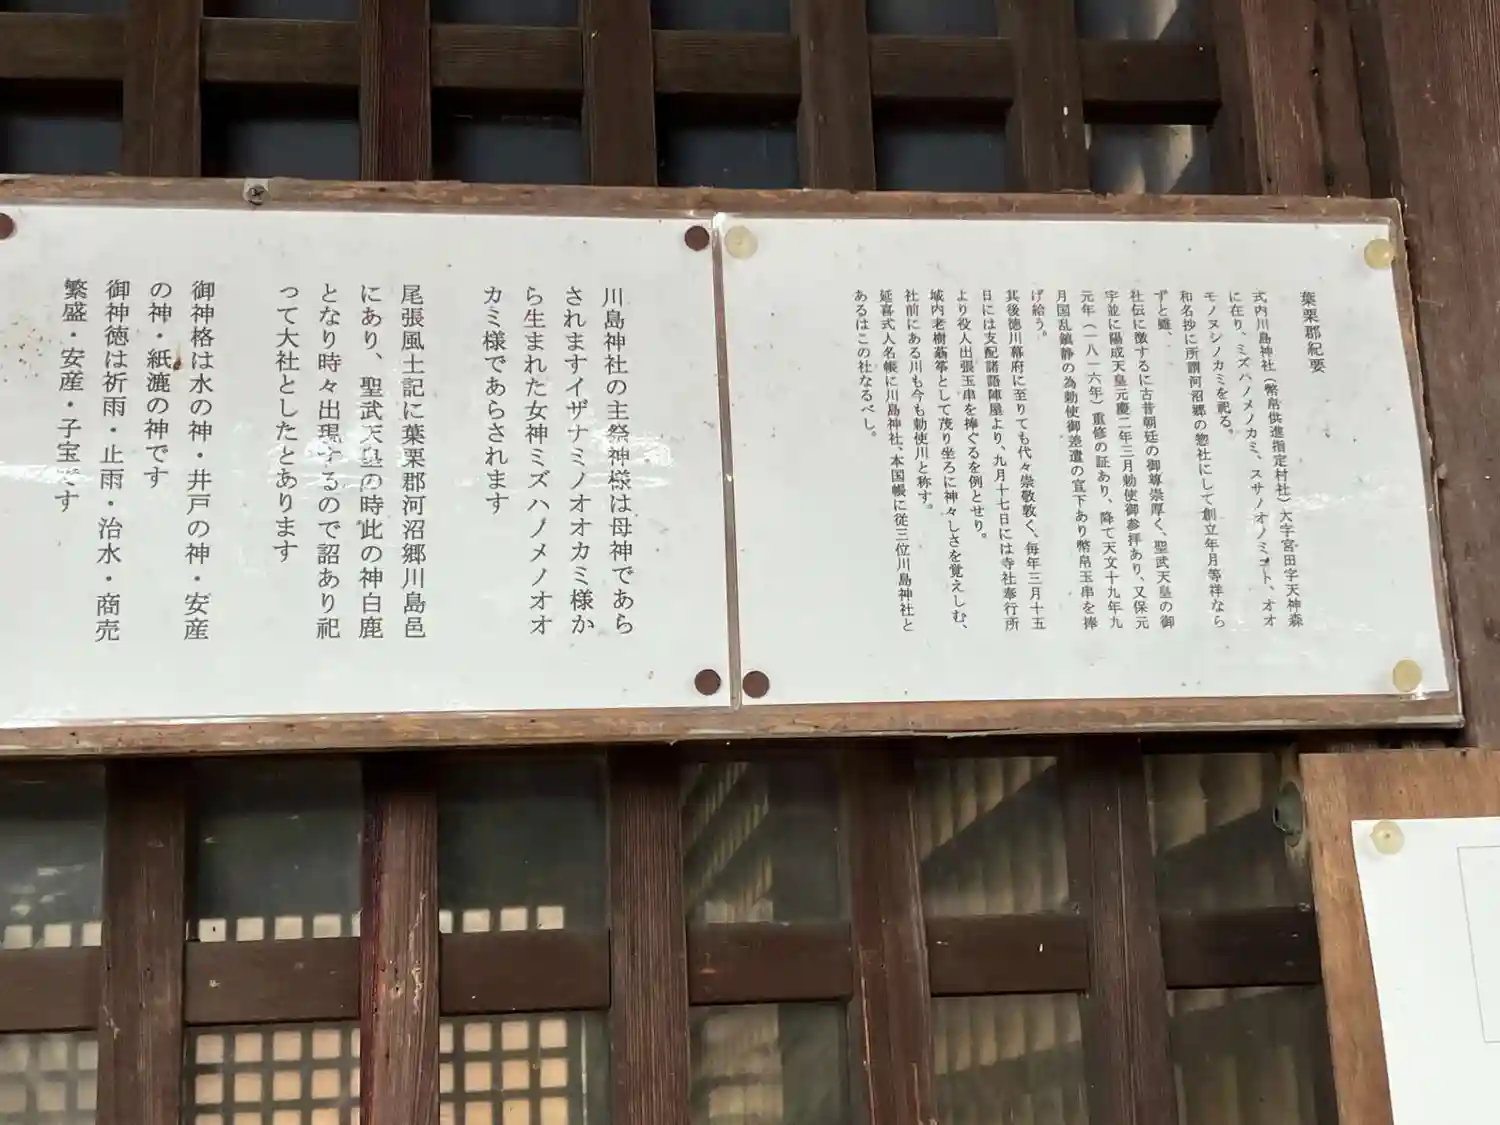 葉栗郡紀要
式内川島神社（幣帛供進指定村社）大字宮田字天神森
に在り、ミズハノメノカミ、スサノオノミコト、オオ
モノヌシノカミを祀る。
和名抄に所謂河沼郷の惣社にして創立年月等祥なら
ずと雖、
社伝に徴するに古昔朝廷の御尊崇厚く、聖武天皇の御
宇並に陽成天皇元慶二年三月勅使御参拝あり、又保元
元年（一八一六年）重修の証あり、降て天文十九年九
月国乱鎮静の為勅使御差遣の宣下あり幣帛玉串を捧
げ給う。
其後徳川幕府に至りても代々崇敬敦く、毎年三月十五
日には支配諸語陣屋より、九月十七日には寺社奉行所
より役人出張玉串を捧ぐるを例とせり。
域内老樹蓊として茂り坐ろに神々しさを覚えしむ、
社前にある川も今も勅使川と称す。
延喜式人名帳に川島神社、本国帳に従三位川島神社と
あるはこの社なるべし。
川島神社の主祭神様は母神であら
されますイザナミノオオカミ様か
ら生まれた女神ミズハノメノオオ
カミ様であらされます
尾張風土記に葉栗郡河沼郷川島邑
にあり、聖武天皇の時此の神白鹿
となり時々出現するので詔あり祀
って大社としたとあります
御神格は水の神・井戸の神・安産
の神・紙漉の神です
御神徳は祈雨・止雨・治水・商売
繁盛・安産・子宝です